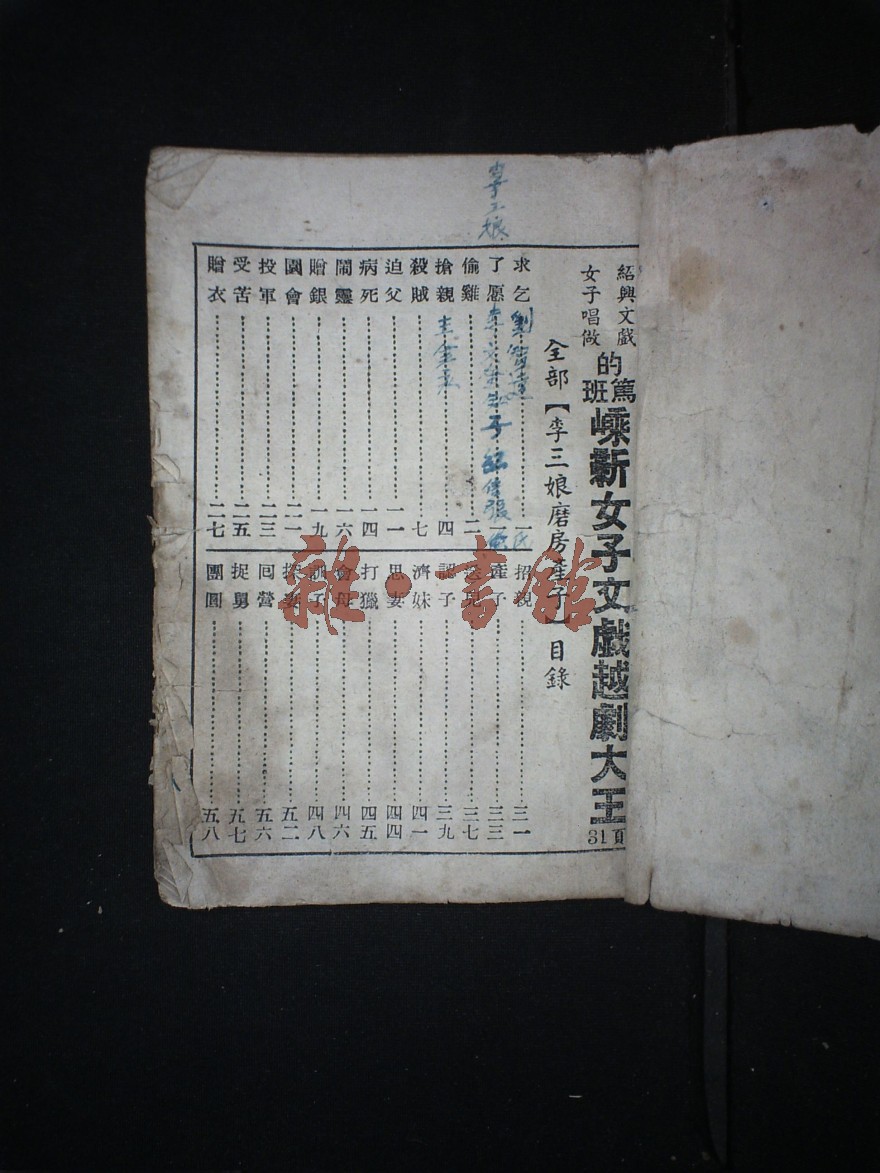 紹興文戲
女子唱做
的篤班
嵊新女子文戲越劇大王
31頁
全部【李三娘磨房產子】目錄
李三娘
求乞…一
了愿…一
偷雞…二
搶親…四
殺賊…七
追父…一一
病死…一四
鬧靈…一六
贈銀…一九
園會…二一
投軍…二三
受苦…二五
贈衣…二七
招親…三一
產子…三三
送兒…三七
認子…三九
濟妹…四一
思妻…四四
打獵…四五
會母…四六
訓子…四八
探妻…五二
囘營…五六
捉舅…五七
團圓…五八
劉智遠
雜·書館